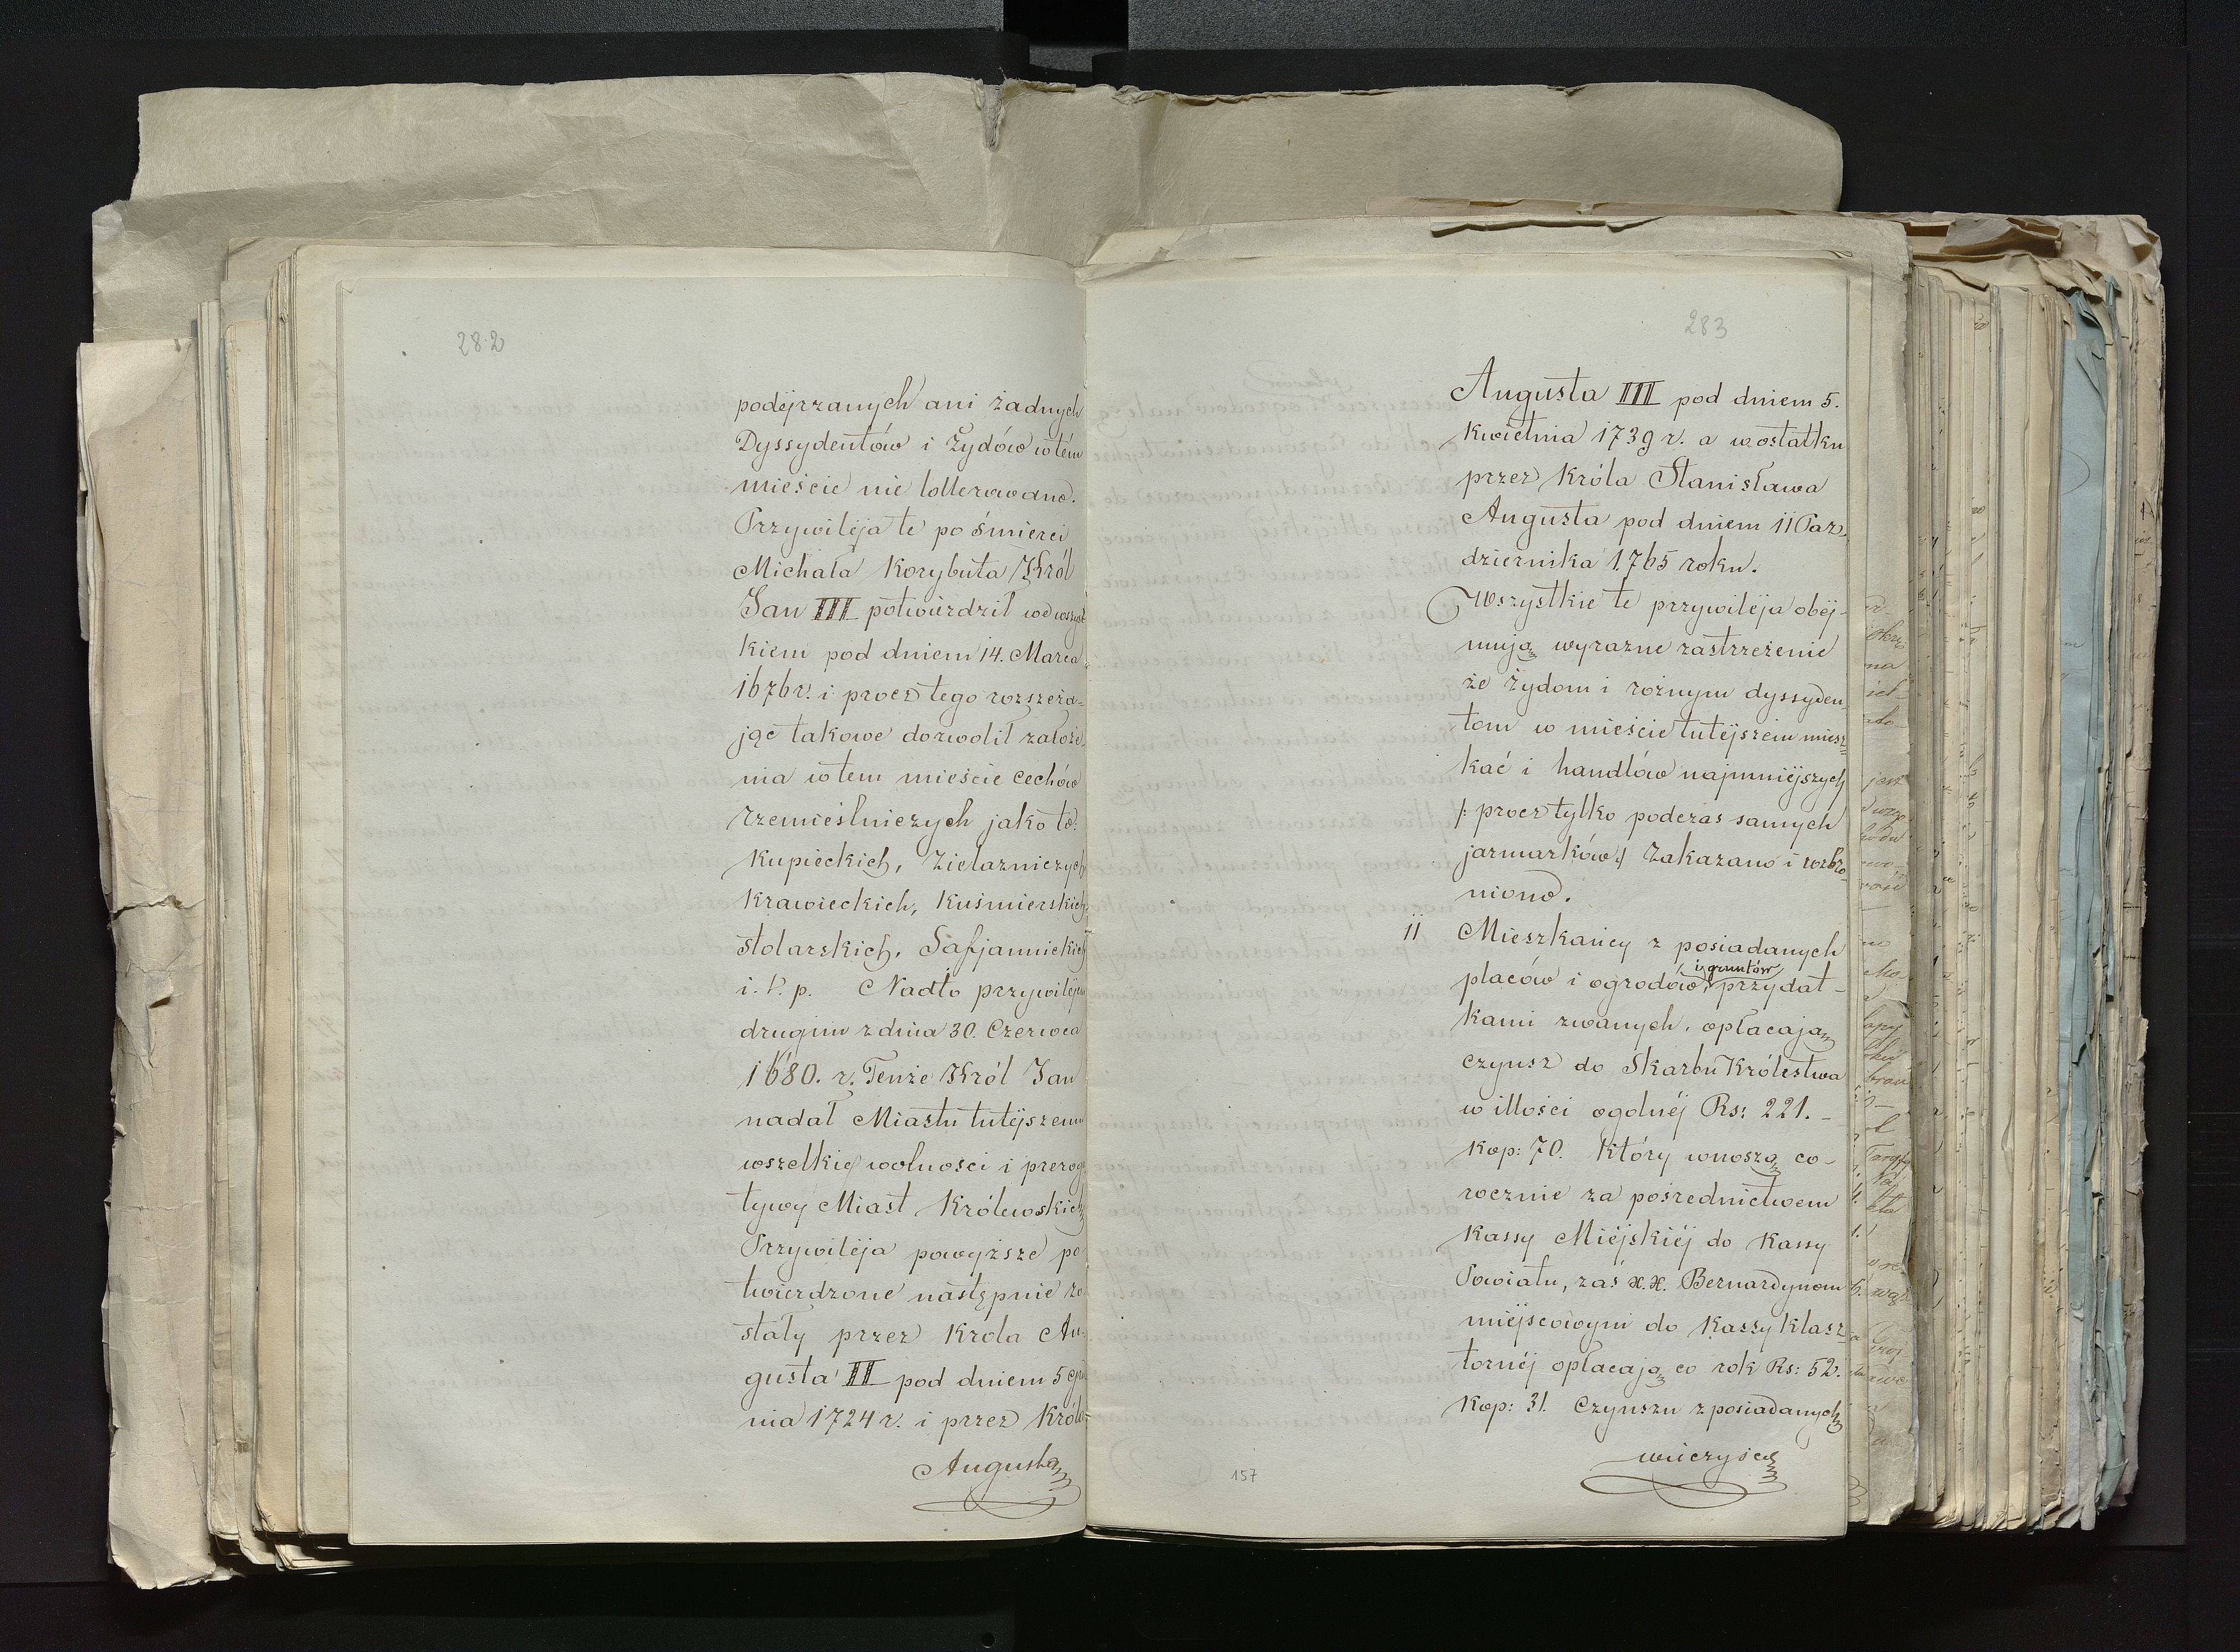 282
podéjrzanych ani żadnych
Dyssydentów i Żydów w tém
mieście nie tollerowano.
Przywiléja te po śmierci
Michała Korybuta Król
Jan III potwierdził we wszyst
kiem pod dniem 14. Marca
1676 r. i procz tego rozszerza-
jąc takowe dozwolił założe-
nia w tem mieście cechów
rzemieślniczych jako to:
Kupieckich, Żielazniczych
Krawieckich, Kuśmierskich,
stolarskich, Safjannickich
i. t. p. Nadto przywiléjem
drugim z dnia 30. Czerwca
1680. r. Tenże Król Jan
nadał Miastu tutéjszemu
wszelkie wolności i preroga
tywy Miast Królewskich
Przywiléja powyższe po
twierdzone następnie zo
stały przez Krola Au-
gusta II pod dniem 5 grud
nia 1724 r. i przez Króla
Augusta
283
Augusta III pod dniem 5.
Kwietnia 1739 r. a w ostatku
przez Króla Stanisława
Augusta pod dniem 11 Paz-
dziernika 1765 roku.
Wszystkie te przywiléja obéj-
mują wyrazne zastrzeżenie
że żydom i rożnym dyssyden-
tom w mieście tutéjszem miesz-
kać i handlów najmniéjszych
/: procz tylko podczas samych
jarmarków :/ zakazano i wzbro-
niono.
11 Mieszkańcy z posiadanych
placów i ogrodów, i gruntów przydat-
kami zwanych, opłacają
czynsz do Skarbu Królestwa
w illości ogolnéj Rs: 221.-
Kop: 70. który wnoszą co-
rocznie za pośrednictwem
Kassy Miéjskiéj do Kassy
Powiatu, zaś x.x. Bernardynom
miéjscowym do Kassy klasz-
tornéj opłacają co rok Rs: 52.
Kop: 31. Czynszu z posiadanych
wieczyscie
157